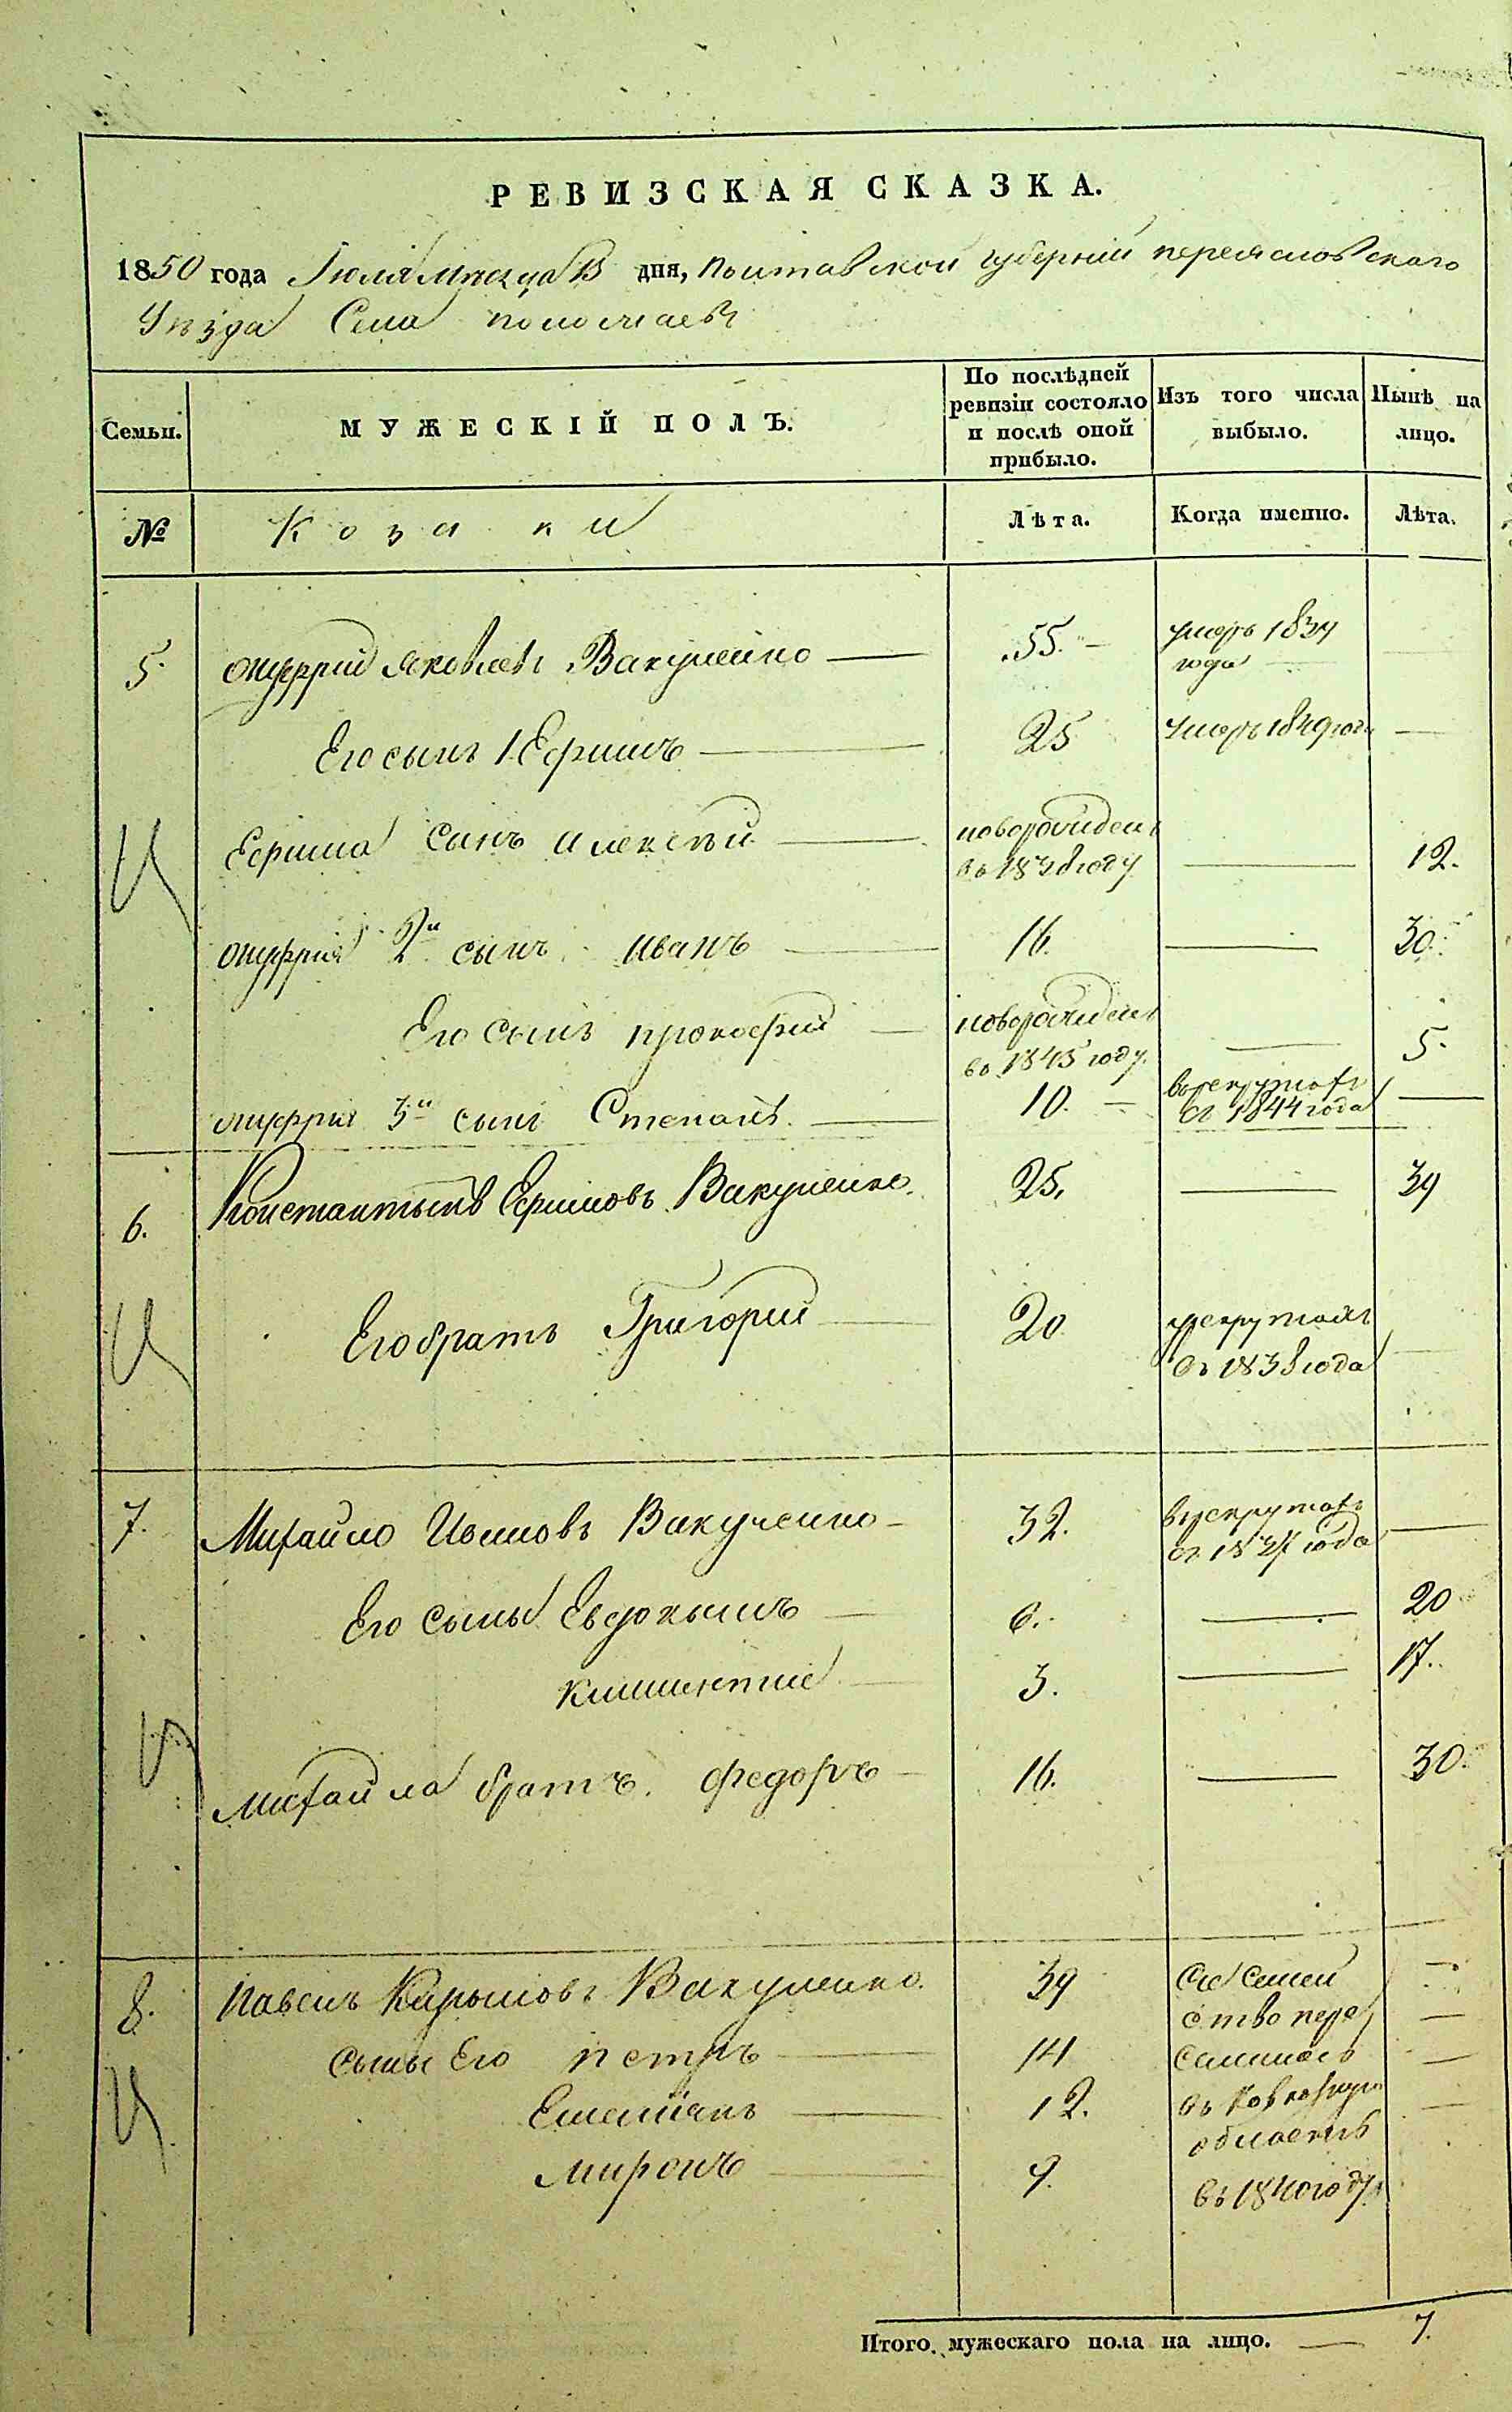 РЕВИЗСКАЯ СКАЗКА.
1850 года Іюля Мѣсяца 13 дня, полтавской губерніи переяславского
Уѣзда Села
Семьи. МУЖЕСКІЙ ПОЛЪ. По послѣдней ревизіи состояло и послѣ оной прибыло. Изъ того числа выбыло. Нынѣ на лицо.
№ Козаки Лѣта. Когда именно. Лѣта.
5. онуфрий яковлевъ Вакуленко — 55. — умеръ 1834 года —
Его сынъ 1 Ефимъ — 25 умеръ 1849 года —
Ефима сынъ алексѣй — новорожденъ въ 1838 году — 12.
онуфрия 2й сынъ иванъ — 16. — 30.
Его сынъ прокофий — новорожденъ въ 1845 году. — 5.
онуфрия 3й сынъ Степанъ. — 10. — в рекрутахъ съ 1844 года —
6. Константынъ Ефимовъ Вакуленко. 25. — 39
Его братъ Григорий — 20 в рекрутахъ съ 1838 года —
7. Михайло Вакуленко — 32. в рекрутахъ съ года —
Его сыны Евдокымъ — 6. — 20
климентий — 3. — 17.
михайла братъ. федоръ — 16. — 30.
8. Павелъ Вакуленко. 39 Сие Семей —
сыны Его петръ — 14 ство пере —
Емелианъ — 12. селилось —
миронъ — 9. въ Кавказкую —
область
въ 1840 году
Итого мужескаго пола на лицо. — 7.